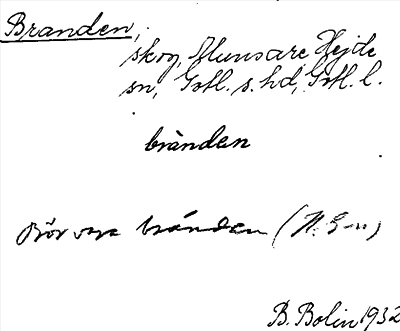 Branden,
skog, Klunsare Hejde
sn, Gotl. s. hd, Gotl. l.
brànden
Bör vara bránden (H. G-n)
B. Bolin 1932